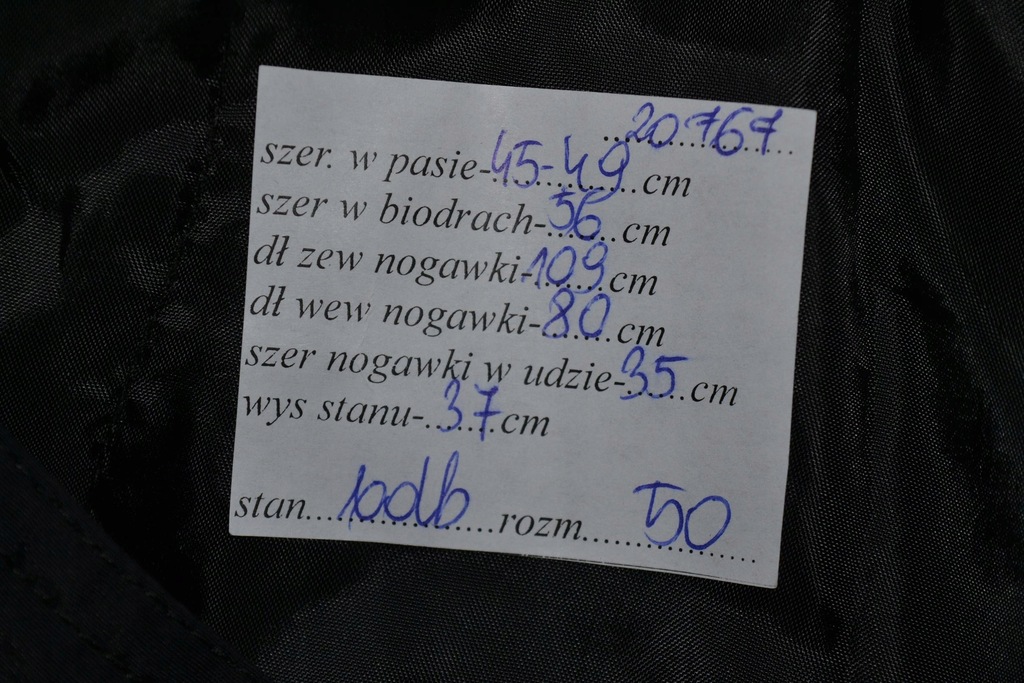 20767
szer. w pasie-45-49cm
szer w biodrach-56cm
dł zew nogawki-109cm
dł wew nogawki-80cm
szer nogawki w udzie-35cm
wys stanu-37cm
stan... ...rozm...50